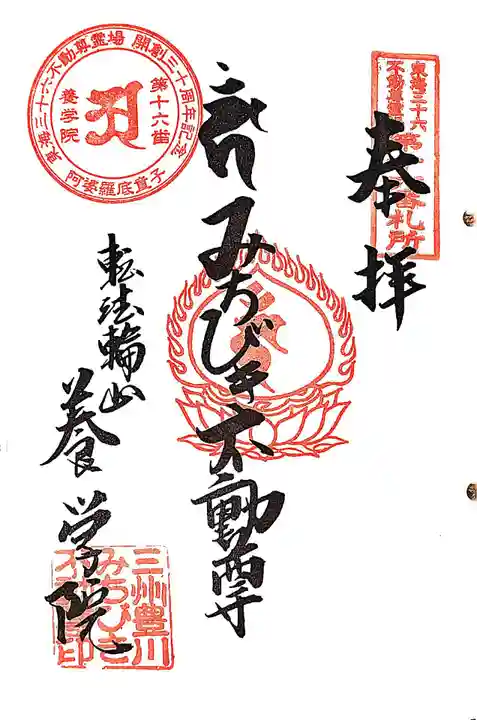 奉拝
東海三十六
不動尊霊
第十六番札所
みちびき不動尊
転法輪山
養学院
東海三十六不動尊霊場 開創三十周年記念
第十六番
養学院
阿婆羅底童子
三州豊川
みちびき